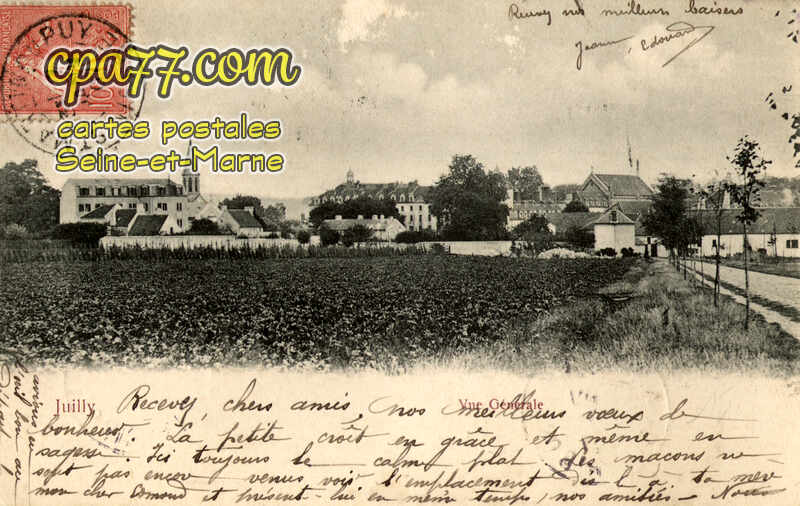 Recevez nos meilleurs baisers
Jeanne Edouard
cpa77.com
cartes postales
Seine-et-Marne
Juilly
Vue Générale
Recevez, chers amis, nos meilleurs vœux de
bonheur. La petite croît en grâce et même en
sagesse. Ici toujours le calme plat. Les maçons ne
sont pas encor venus voir l'emplacement dis l'à ta mère
mon cher Edmond et présent-lui en même temps, nos amitiés. Nous